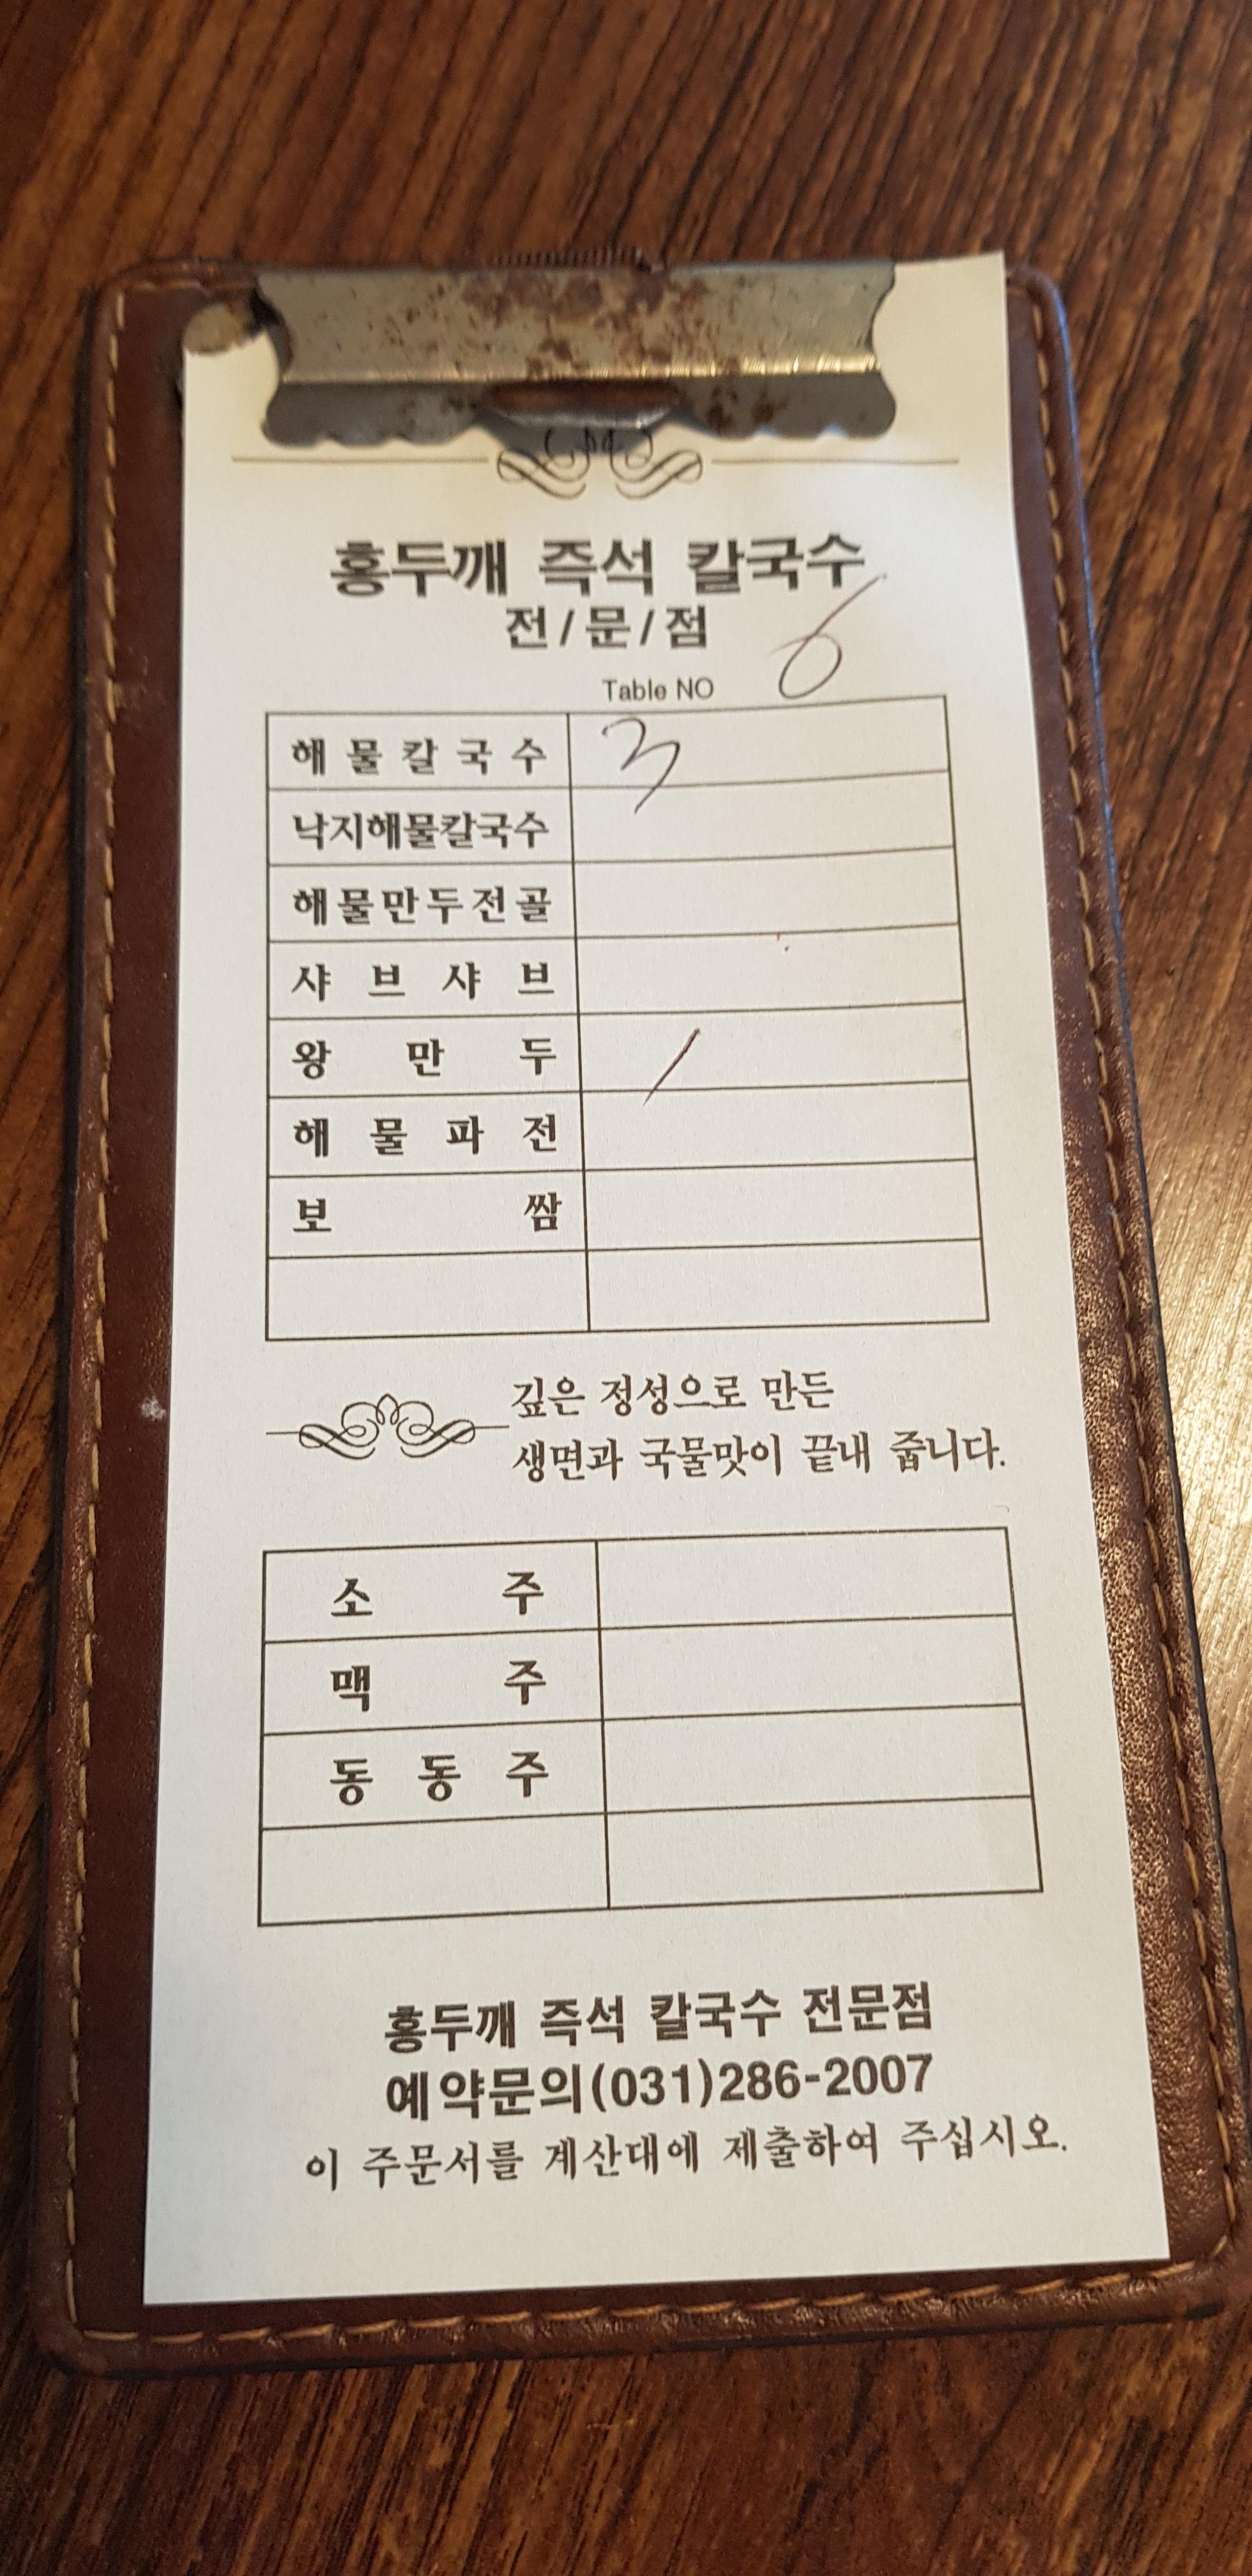 홍두깨 즉석 칼국수
전/문/점
Table NO 6
해물칼국수 3
낙지해물칼국수
해물만두전골
샤브샤브
왕만두 /
해물파전
보쌈
깊은 정성으로 만든
생면과 국물맛이 끝내 줍니다.
소주
맥주
동동주
홍두깨 즉석 칼국수 전문점
예약문의(031)286-2007
이 주문서를 계산대에 제출하여 주십시오.